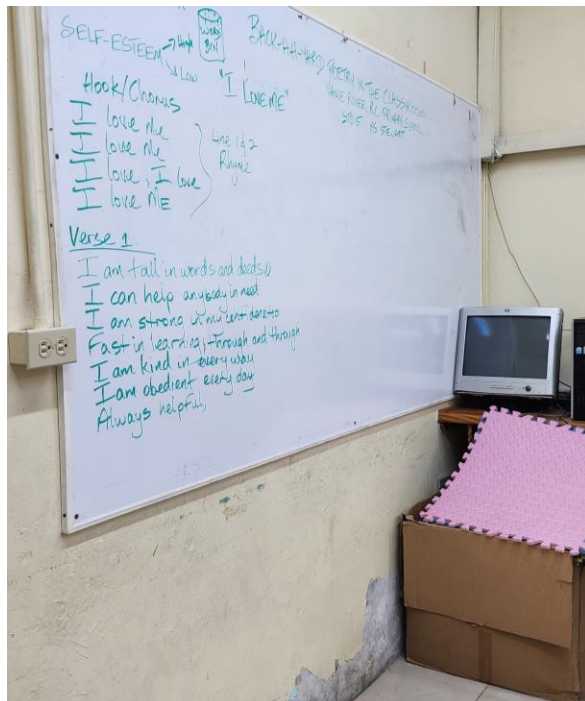 SELF-ESTEEM
High
Low
WORD
BIN
"I LOVE ME"
BACK-AH-YARD POETRY IN THE CLASSROOM
RIVER R.C. PRIMARY SCHOOL
STD 5
Hook/Chorus
I love Me
I love Me
I love, I love
I love ME
Line 1 & 2
Rhyme
Verse 1
I am tall in words and deeds
I can help anybody in need
I am strong in my confidence
Fast in learning, through and through
I am kind in every way
I am obedient every day
Always helpful,